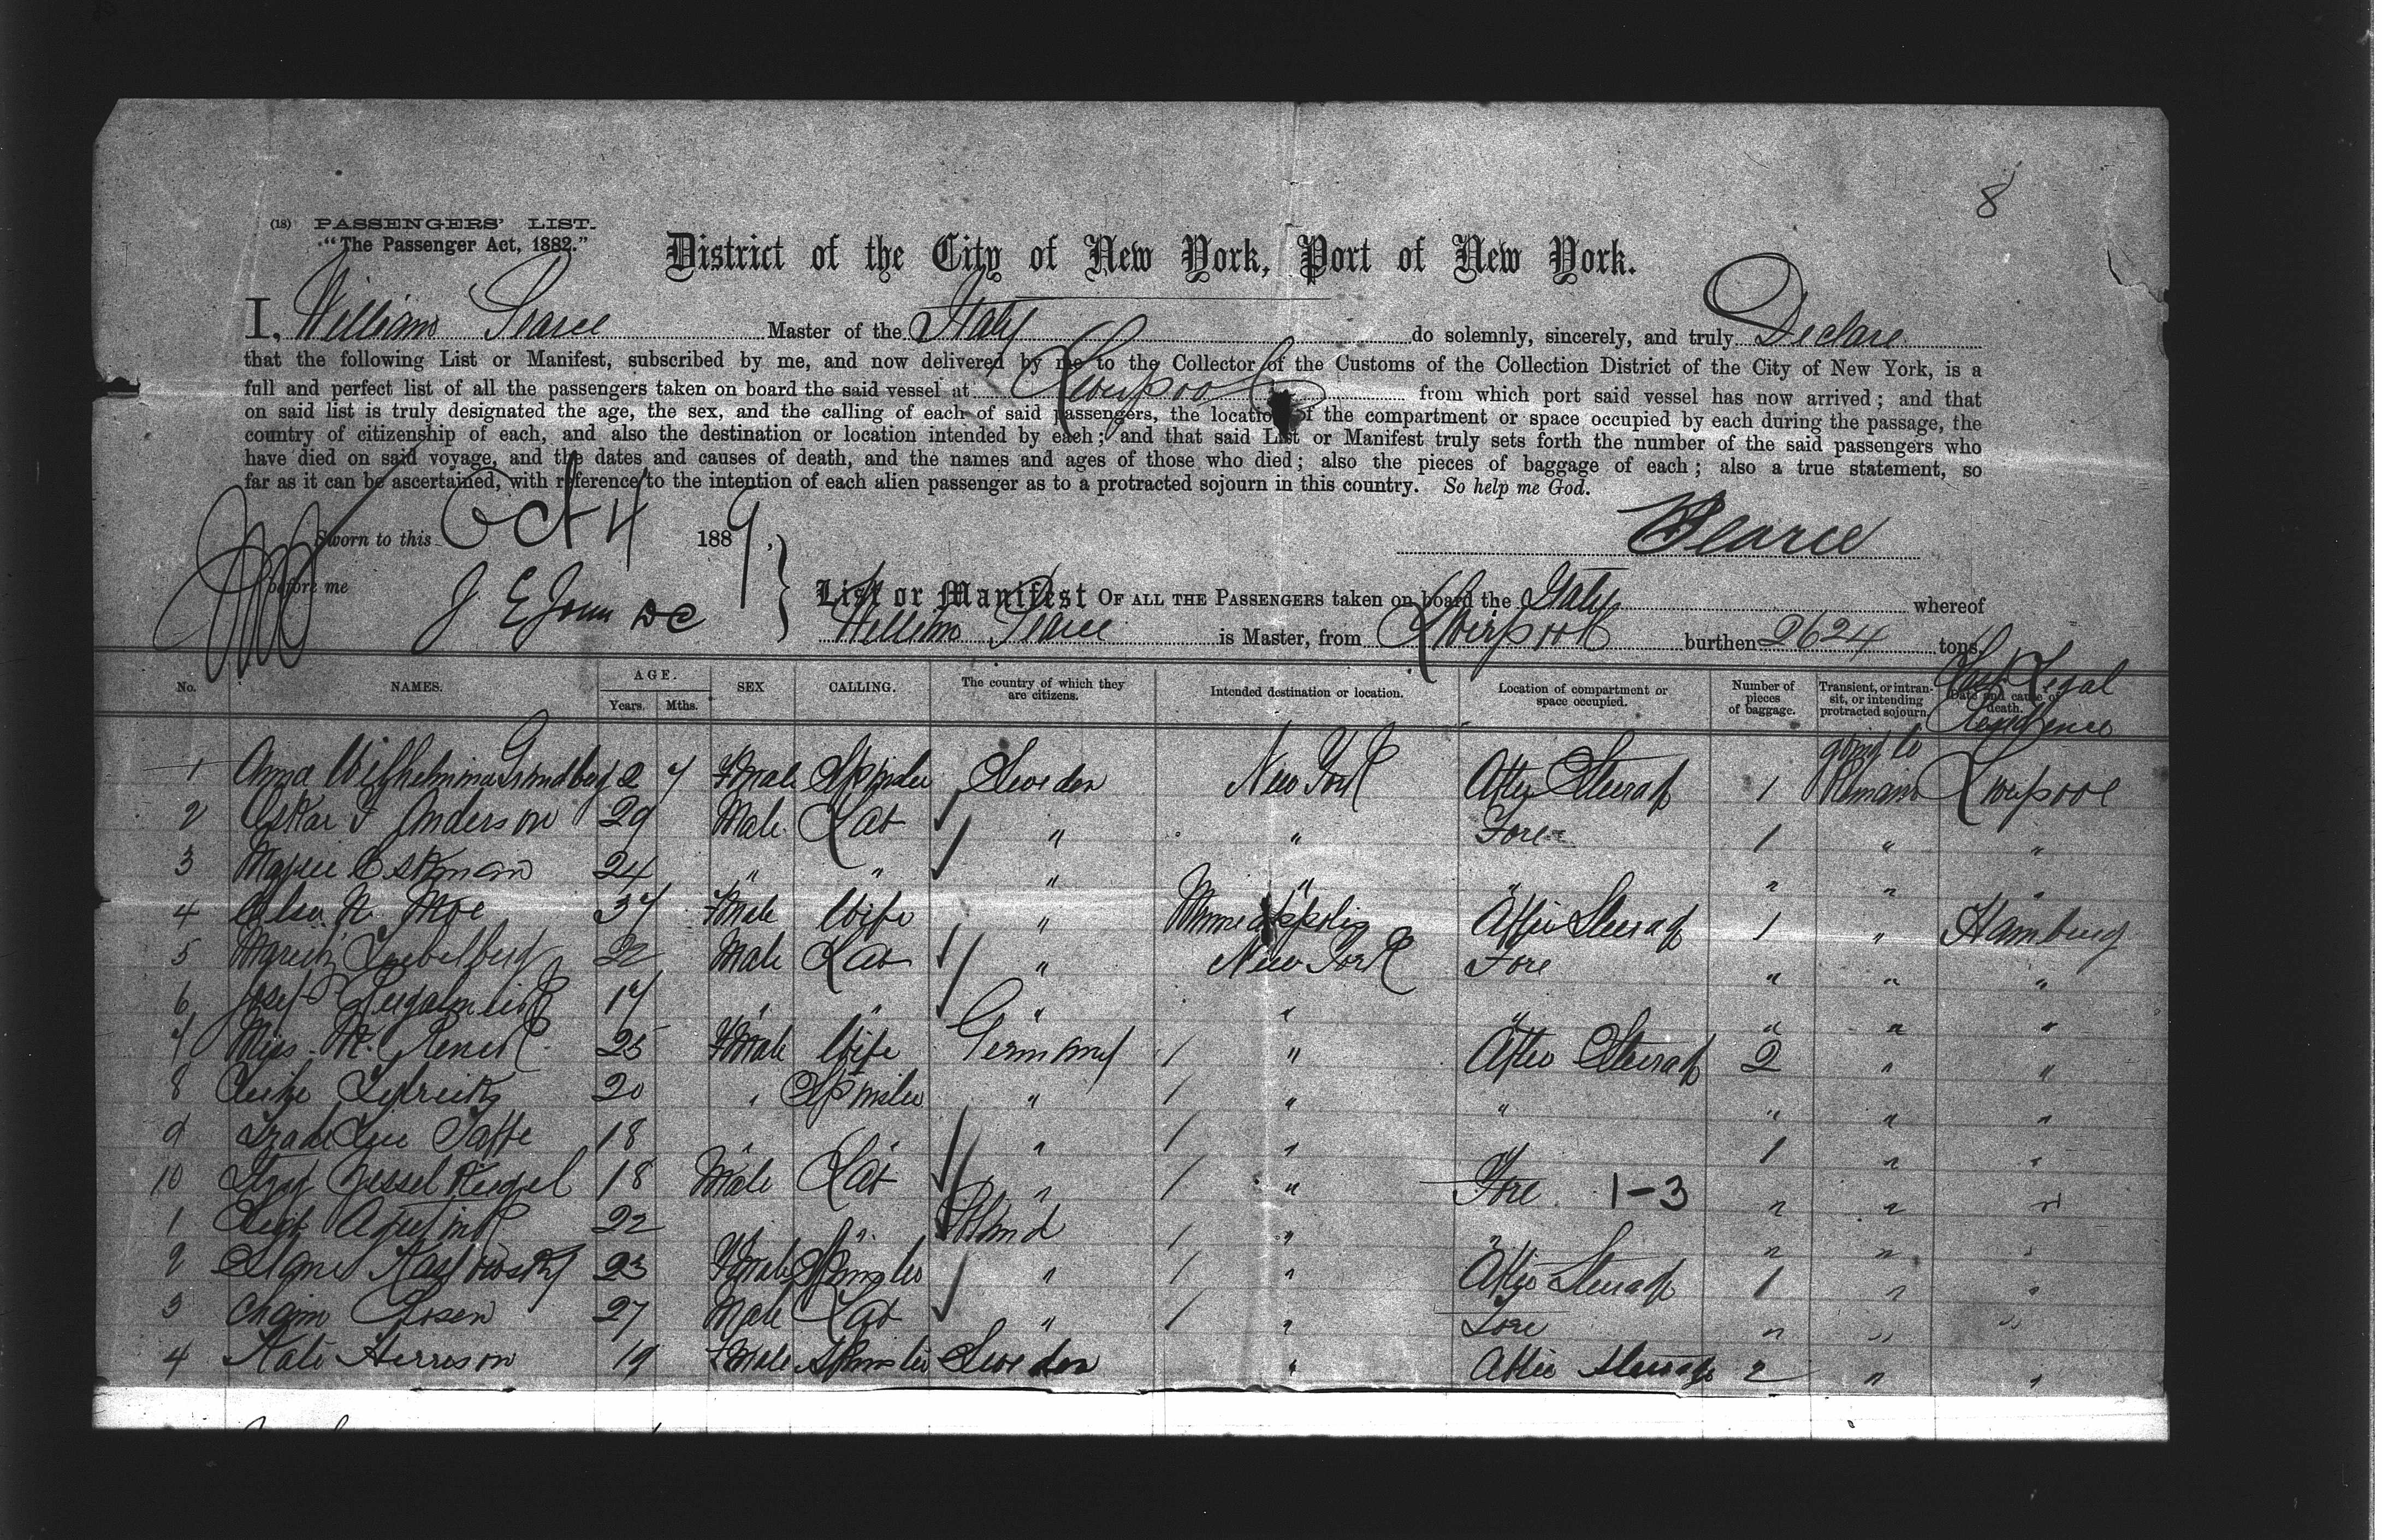 8
(18) PASSENGERS' LIST.
"The Passenger Act, 1882."
District of the City of New York, Port of New York.
I, William Pearce Master of the Italy do solemnly, sincerely, and truly Declare
that the following List or Manifest, subscribed by me, and now delivered by me to the Collector of the Customs of the Collection District of the City of New York, is a
full and perfect list of all the passengers taken on board the said vessel at Liverpool from which port said vessel has now arrived; and that
on said list is truly designated the age, the sex, and the calling of each of said passengers, the location of the compartment or space occupied by each during the passage, the
country of citizenship of each, and also the destination or location intended by each; and that said List or Manifest truly sets forth the number of the said passengers who
have died on said voyage, and the dates and causes of death, and the names and ages of those who died; also the pieces of baggage of each; also a true statement, so
far as it can be ascertained, with reference to the intention of each alien passenger as to a protracted sojourn in this country. So help me God.
Sworn to this Oct 4 1889,
W Pearce
before me
List or Manifest OF ALL THE PASSENGERS taken on board the Italy whereof
William Pearce is Master, from Liverpool burthen 2624 tons.
No. NAMES. AGE. Years. Mths. SEX CALLING. The country of which they are citizens. Intended destination or location. Location of compartment or space occupied. Number of pieces of baggage. Transient, or intransit, or intending protracted sojourn. Date and cause of death. Last Legal Residence
1 Anna Wilhelmina 2 7 Fmale Spinster Sweden New York After Steerage 1 going to Remain Liverpool
2 Oskar F Anderson 29 Male Lab " " Fore 1 " "
3 24 " " " " " " " "
4 Elsa N. Moe 37 Fmale Wife " Minneapolis After Steerage 1 " Hamburg
5 22 Male Lab " New York Fore " " "
6 Josef 17 " " " " " " " "
7 Miss M. 25 Fmale Wife Germany " After Steerage 2 " "
8 20 " Spinster " " " " " "
9 18 " " " " 1 " "
10 18 Male Lab " " Fore 1-3 " " "
1 22 " " " " " "
2 23 Fmale Spinster " " After Steerage 1 " "
3 Chaim Rosen 27 Male Lab " " Fore " " "
4 Kate Herrison 19 Fmale Spinster Sweden " After Steerage 2 " "